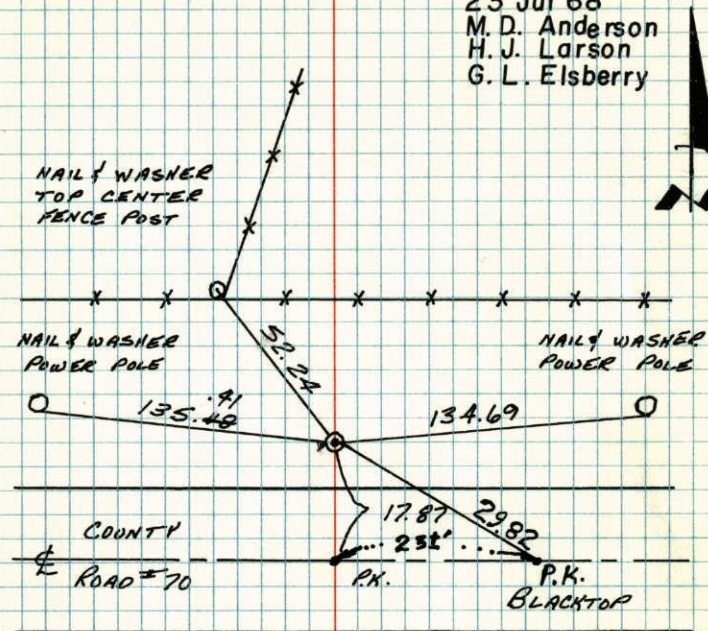 23 Jul 68
M. D. Anderson
H. J. Larson
G. L. Elsberry
NAIL & WASHER
TOP CENTER
FENCE POST
52.24
NAIL & WASHER
POWER POLE
NAIL & WASHER
POWER POLE
.41
135.48
134.69
17.87
29.82
231'
COUNTY
℄ ROAD #70
P.K.
P.K.
BLACKTOP